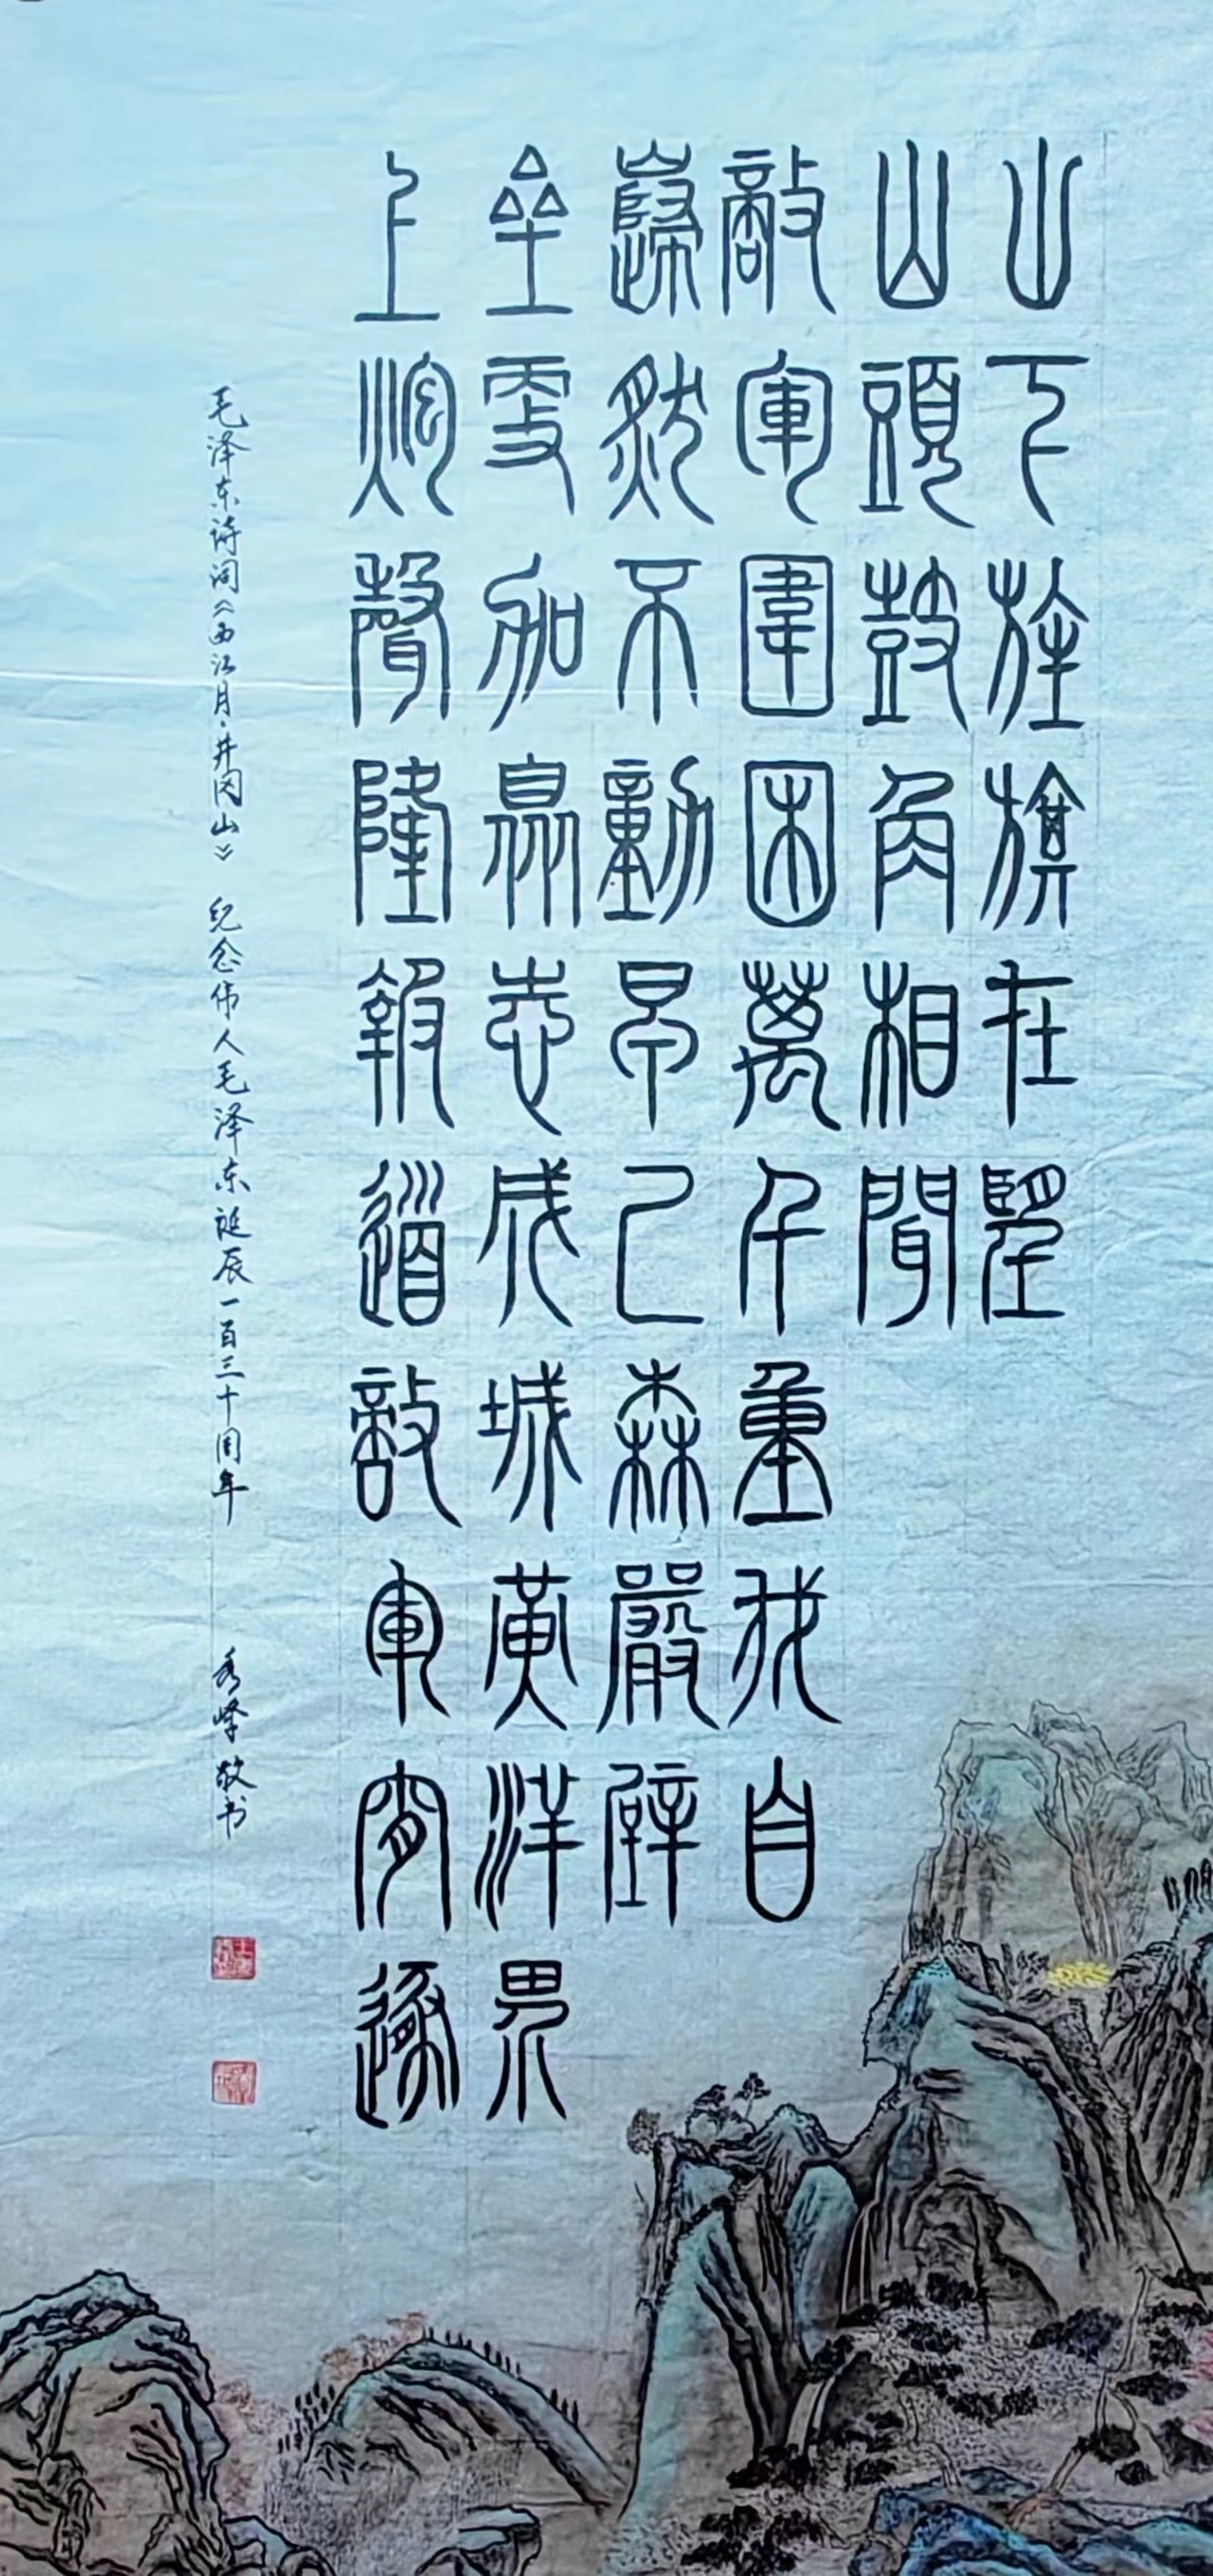 山下旌旗在望
山頭鼓角相聞
敵軍圍困萬千重我自
巋然不動早已森嚴壁
壘更加眾志成城黃洋界
上炮聲隆報道敵軍宵遁
毛泽东诗词《西江月·井冈山》 纪念伟人毛泽东诞辰一百三十周年 秀峰敬书